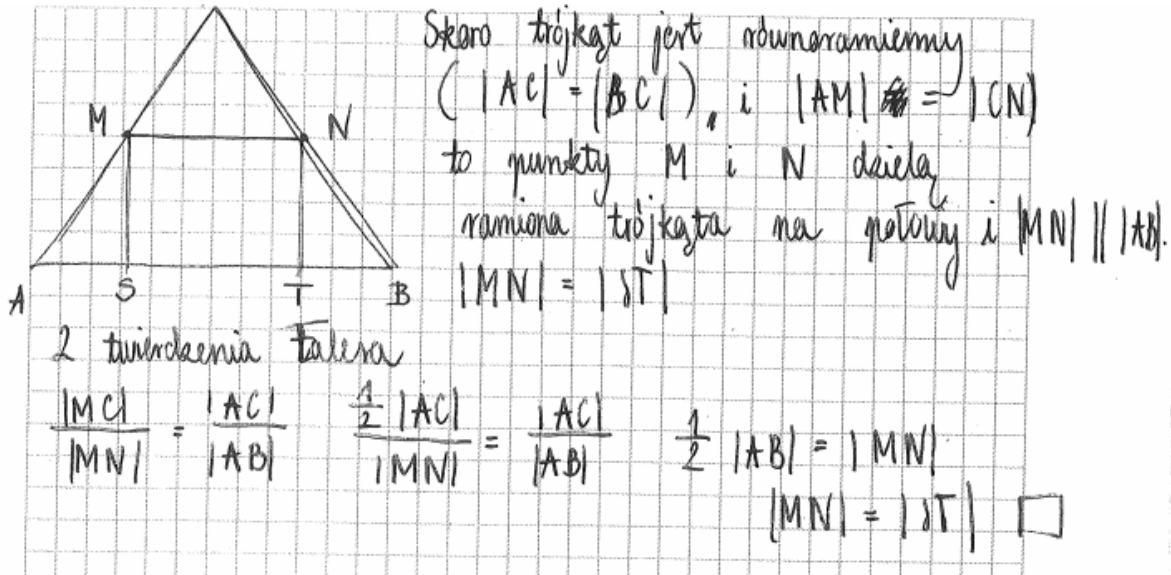 Skoro trójkąt jest równoramienny
(|AC| = |BC|), i |AM| = |CN|
to punkty M i N dzielą
ramiona trójkąta na połowy i |MN| || |AB|.
|MN| = |ST|
M N
A S T B
2 twierdzenia Talesa
|MC|/|MN| = |AC|/|AB| 1/2|AC|/|MN| = |AC|/|AB| 1/2 |AB| = |MN|
|MN| = |ST| □